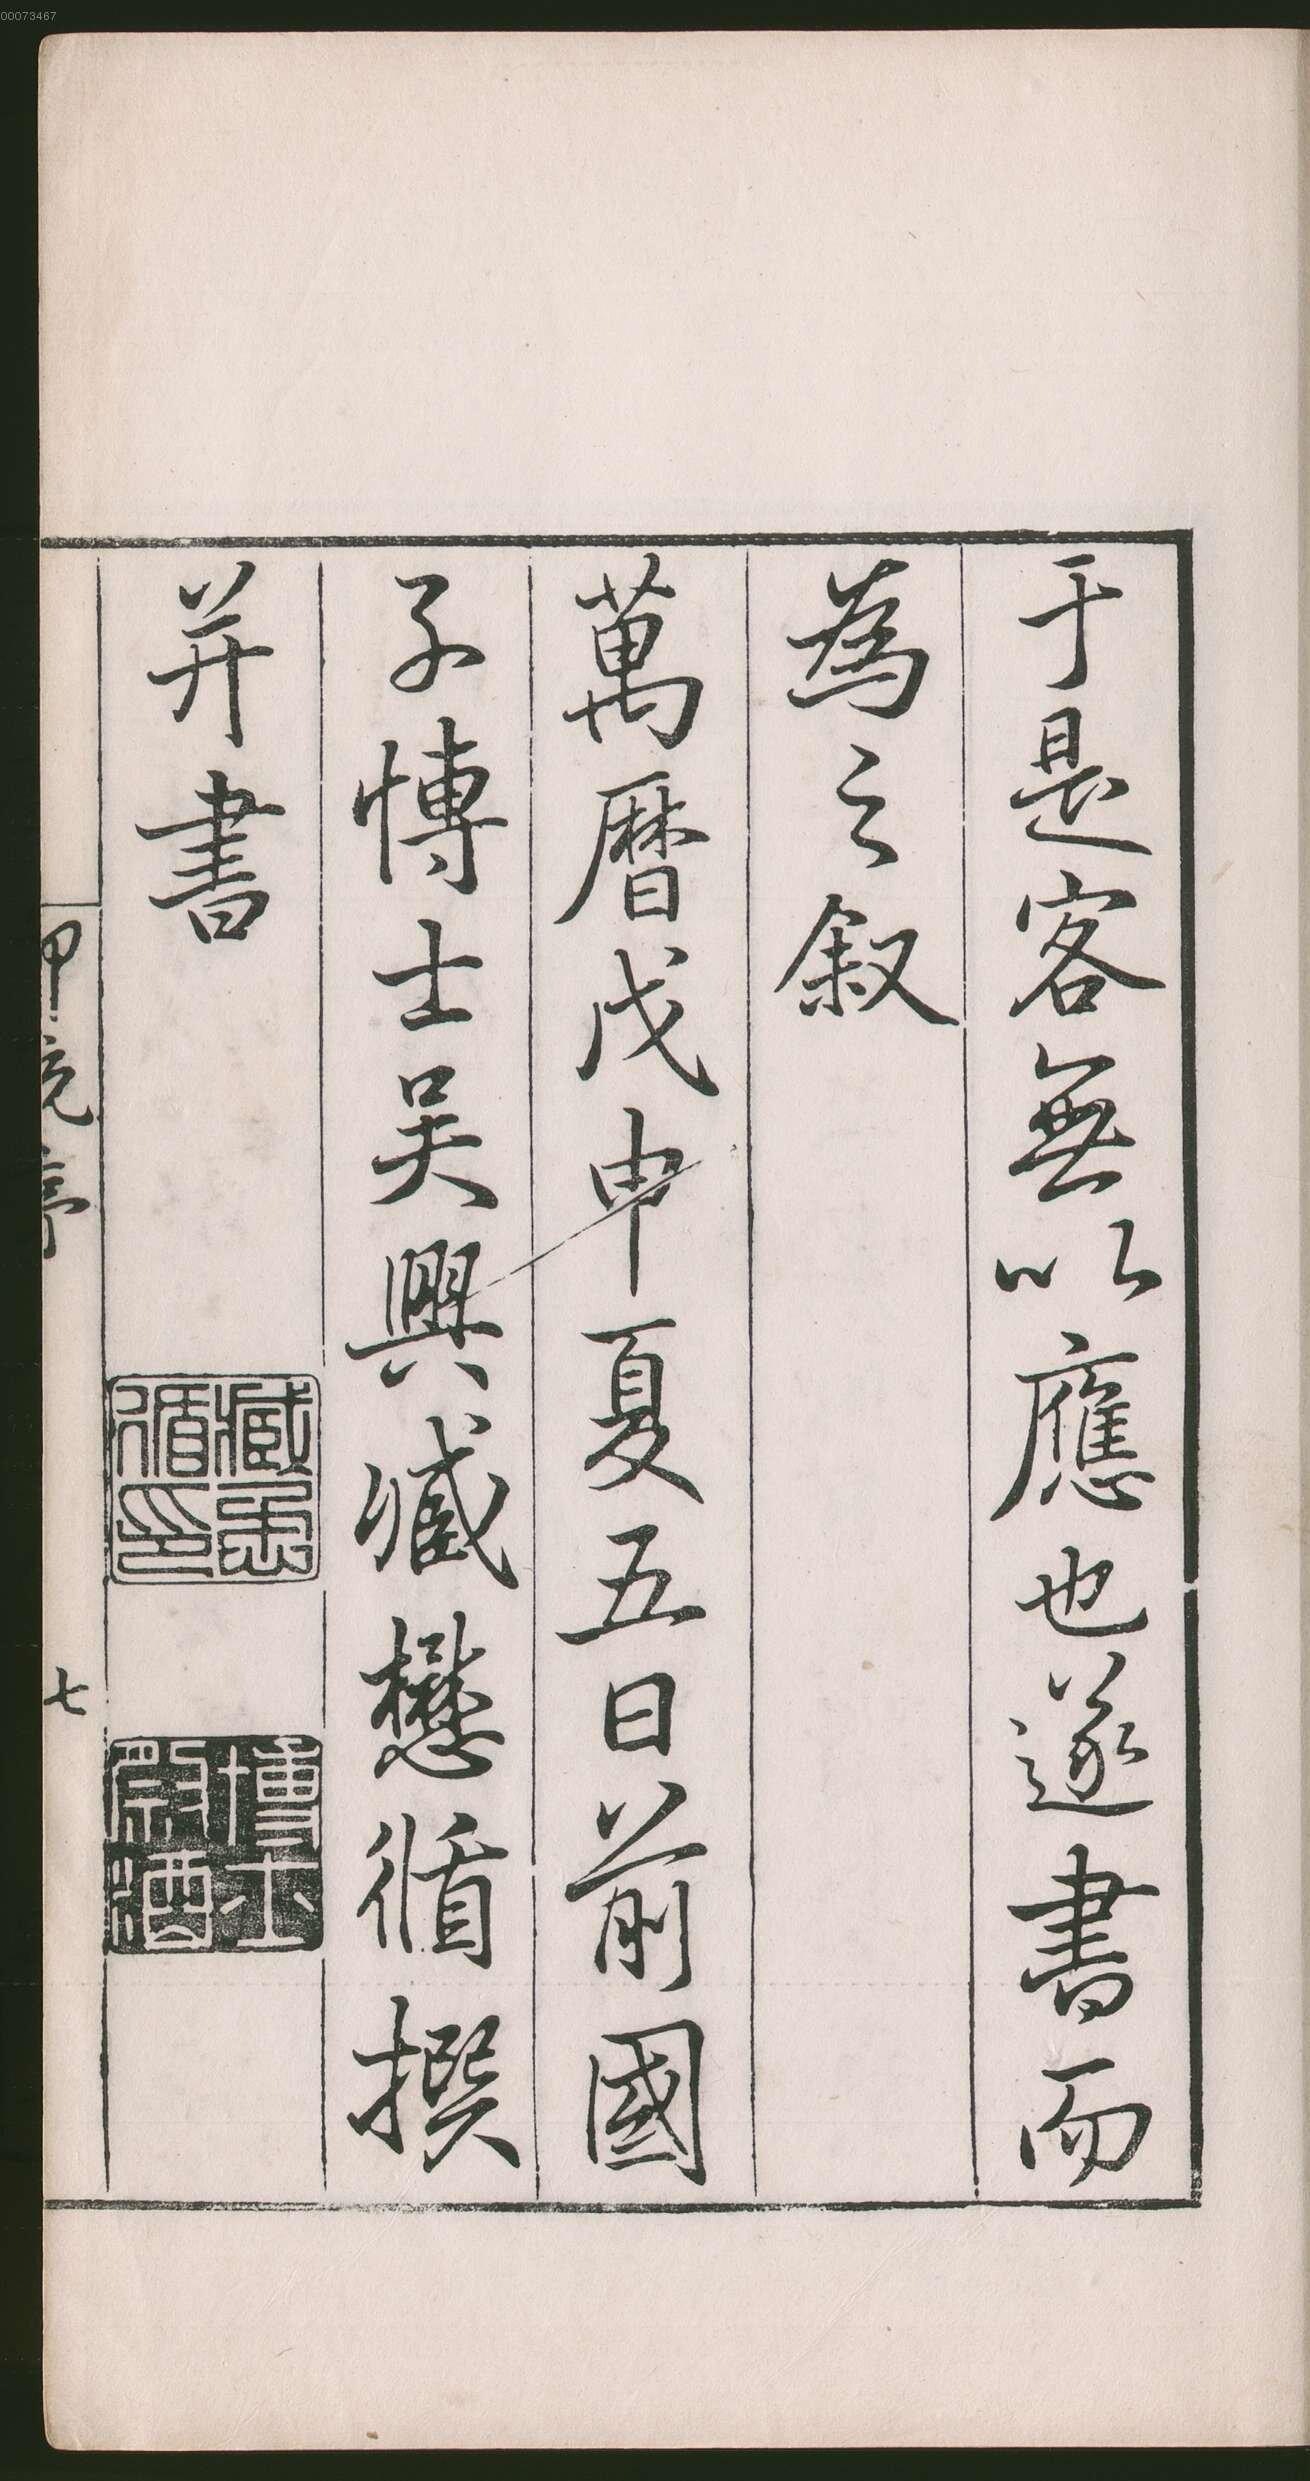 00073467
于是客無以應也遂書而
為之叙
萬暦戊申夏五日前國
子博士吳興臧懋循撰
并書
臧懋
循印
博士
祭酒
七